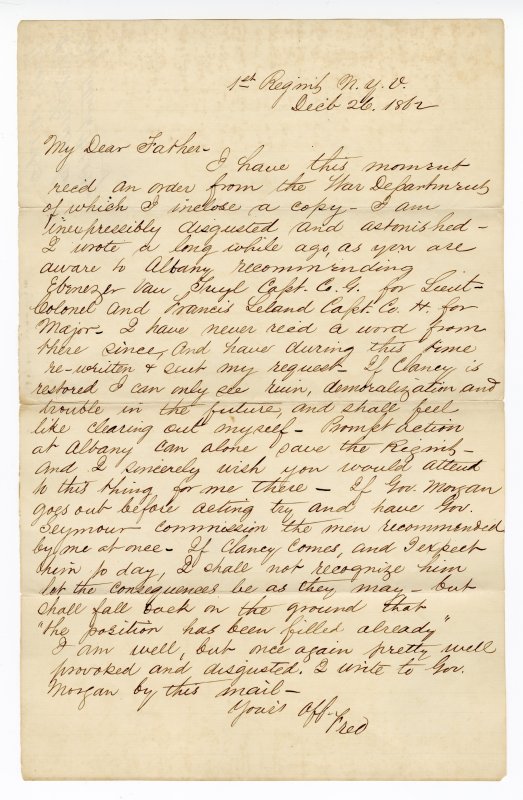 1st Regimt N.Y.V.
Decb 26. 1862
My Dear Father-
I have this moment
recd an order from the War Department
of which I inclose a copy - I am
inexpressibly disgusted and astonished -
I wrote a long while ago, as you are
aware to Albany recommending
Ebenezer Van Tuyl Capt. Co. G. for Lieut-
Colonel and Francis Leland Capt. Co. H. for
Major - I have never recd a word from
there since, and have during this time
re-written & sent my request - If Clancy is
restored I can only see ruin, demoralization and
trouble in the future, and shall feel
like clearing out myself - Prompt action
at Albany can alone save the Regimt -
and I sincerely wish you would attend
to this thing for me there - If Gov. Morgan
goes out before acting try and have Gov.
Seymour commission the men recommended
by me at once - If Clancy comes, and I expect
him to day, I shall not recognize him
let the consequences be as they may - but
shall fall back on the ground that
"the position has been filled already"
I am well, but once again pretty well
provoked and disgusted. I write to Gov.
Morgan by this mail -
Yours aff.
Fred